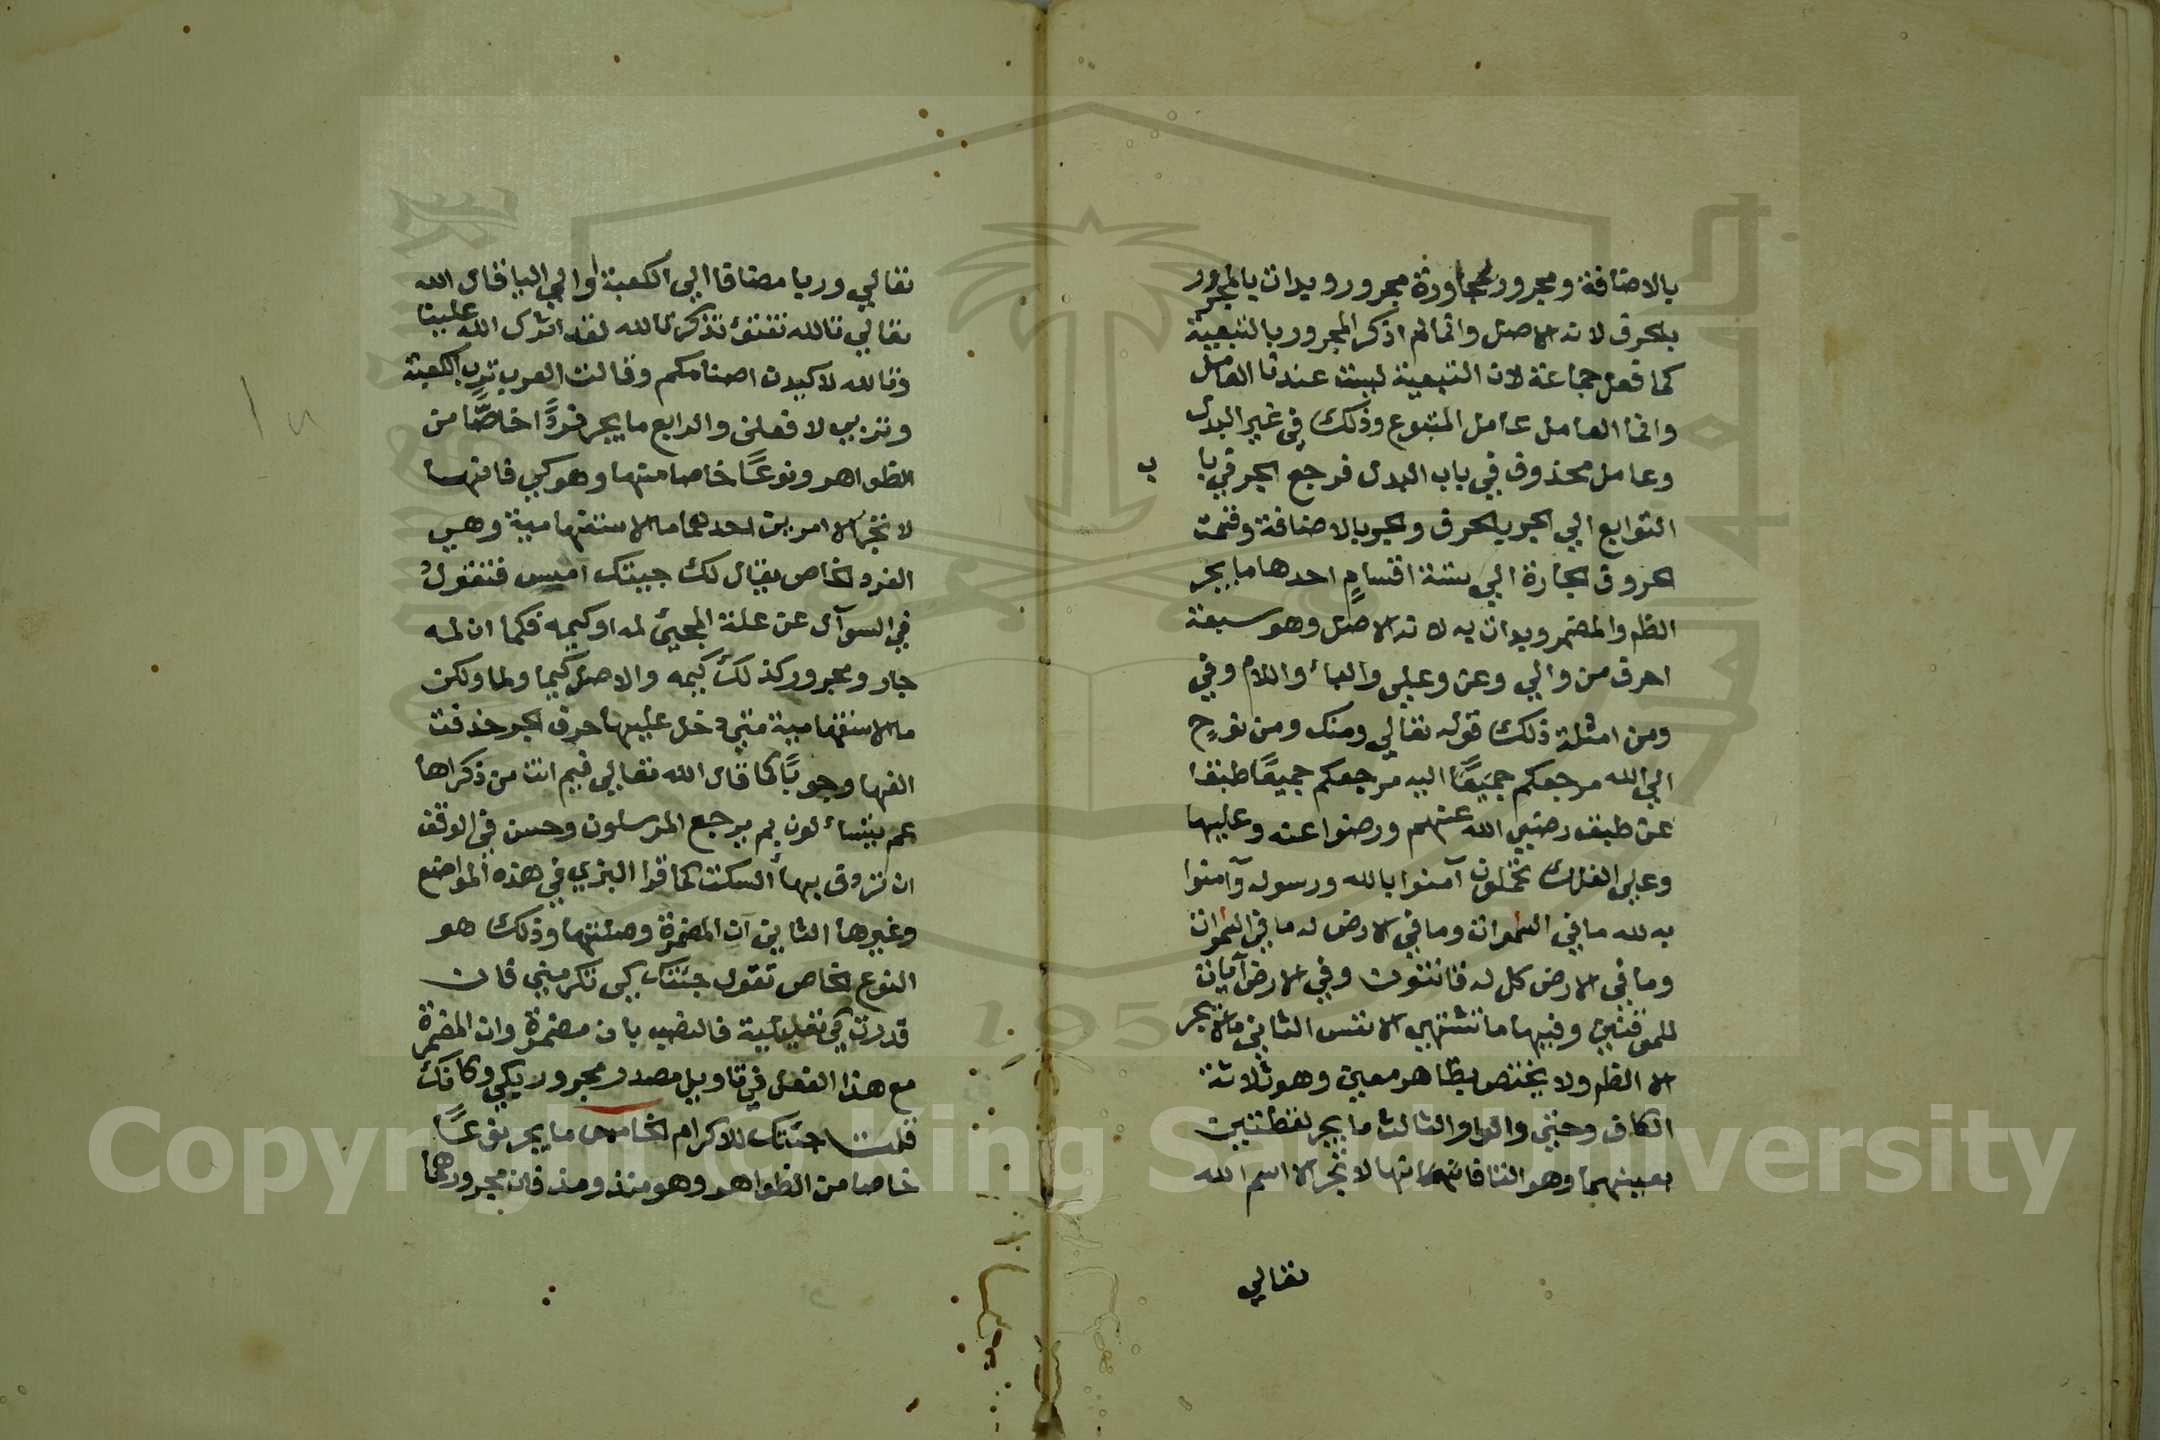 بالاضافة ومجرور لمجاورة مجرور وبدات بالمجرور
بلحرف لانه الاصل وانما لم اذكر المجرور بالتبعية
كما فعل جماعة لان التبعية ليست عندنا العامل
وانما العامل عامل المتبوع وذلك في غير البدل
وعامل محذوف في باب البدل فرجع الجر في با ب
التوابع الي الجر بالحرف والجر بالاضافة وقسمت
الحروف الجارة الي ستة اقسامٍ احدها ما يجر
الظم والمضمر وبدات به لانه الاصل وهو سبعة
احرف من والي وعن وعلي والباء واللام وفي
ومن امثلة ذلك قوله تعالي ومنك ومن نوحٍ
الي الله مرجعكم جميعًا اليه مرجعكم جميعًا طبقا
عن طبق رضي الله عنهم ورضوا عنه وعليها
وعلي الفلك تحملون آمنوا بالله ورسوله وآمنوا
به لله ما في السموات وما في الارض له ما في السموات
وما في الارض كل له قانتون وفي الارض آيات
للموقنين وفيها ما تشتهي الانفس الثاني ما لا يجر
الا الظم ولا يختص بظاهر معين وهو ثلاثة
الكاف وحتي والواو الثالث ما يجر لفظتين
بعينهما وهو التا فانها لا تجر الا اسم الله
تعالي
تعالي وربا مضافا الي الكعبة او الي اليا قال الله
تعالي تالله تفتؤ تذكر تالله لقد اثرك الله علينا
وتالله لاكيدن اصنامكم وقالت العرب ترب الكعبة
وتربي لافعلن والرابع ما يجر فردًا خاصًّا من
الظواهر ونوعًا خاصا منها وهو كي فانها
لا تجر الا امرين احدهما ما الاستفهامية وهي
الفرد الخاص يقال لك جيتك امس فتقول
في السوآل عن علة المجيئ لمه او كيمه فكما ان لمه
جار ومجرور كذلك كيمه والاصل كيما ولما ولكن
ما الاستفهامية متي دخل عليها حرف الجر حذفت
الفها وجوبًا كما قال الله تعالي فيم انت من ذكراها
عم يتساءلون بم يرجع المرسلون وحسن في الوقف
ان تردف بهاء السكت كما قرا البزي في هذه المواضع
وغيرها الثاني ان المضمرة وصلتها وذلك هو
النوع الخاص تقول جئتك كي تكرمني فان
قدرت كي تعليلية فالنصب بان مضمرة وان المضمرة
مع هذا الفعل في تاويل مصدر مجرور بكي وكانك
قلت جئتك للاكرام الخامس ما يجر نوعًا
خاصا من الظواهر وهو منذ ومذ فان مجرورهما
Copyright © King Saud University
1957